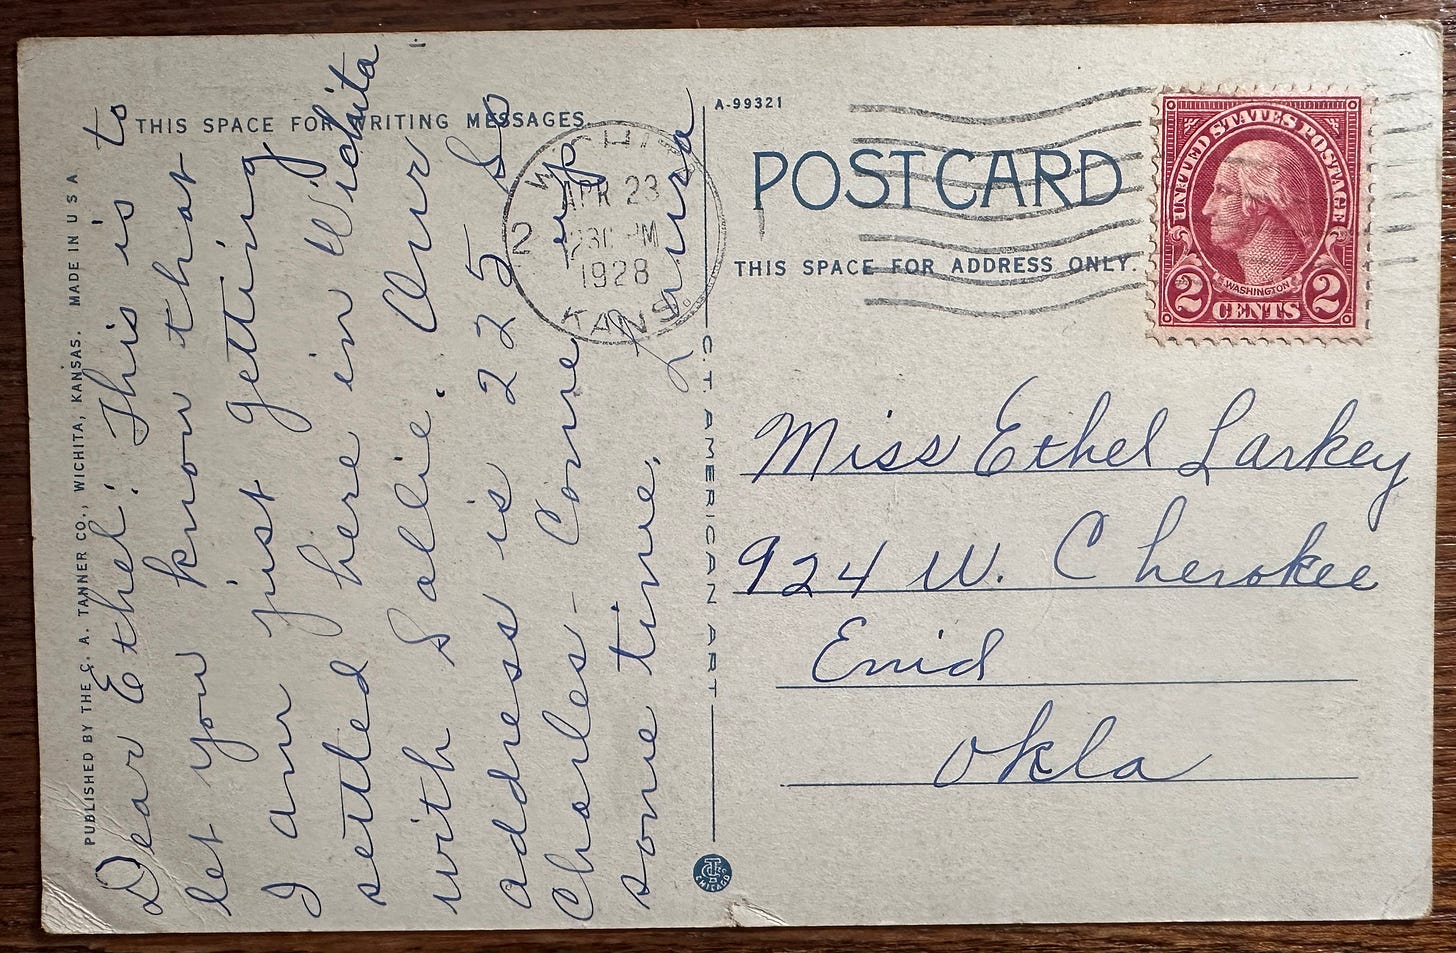 THIS SPACE FOR WRITING MESSAGES.
Dear Ethel: This is to
let you know that
I am just getting
settled here in Wichita
with Sallie. Our
address is 225 So
Charles - Come up
some time.
Laura
PUBLISHED BY THE C. A. TANNER CO., WICHITA, KANSAS. MADE IN U S A
A-99321
POST CARD
THIS SPACE FOR ADDRESS ONLY.
C. T. AMERICAN ART
CHICAGO
APR 23
1928
KANS.
2
UNITED STATES POSTAGE
WASHINGTON
2 CENTS 2
Miss Ethel Larkey
924 W. Cherokee
Enid
Okla